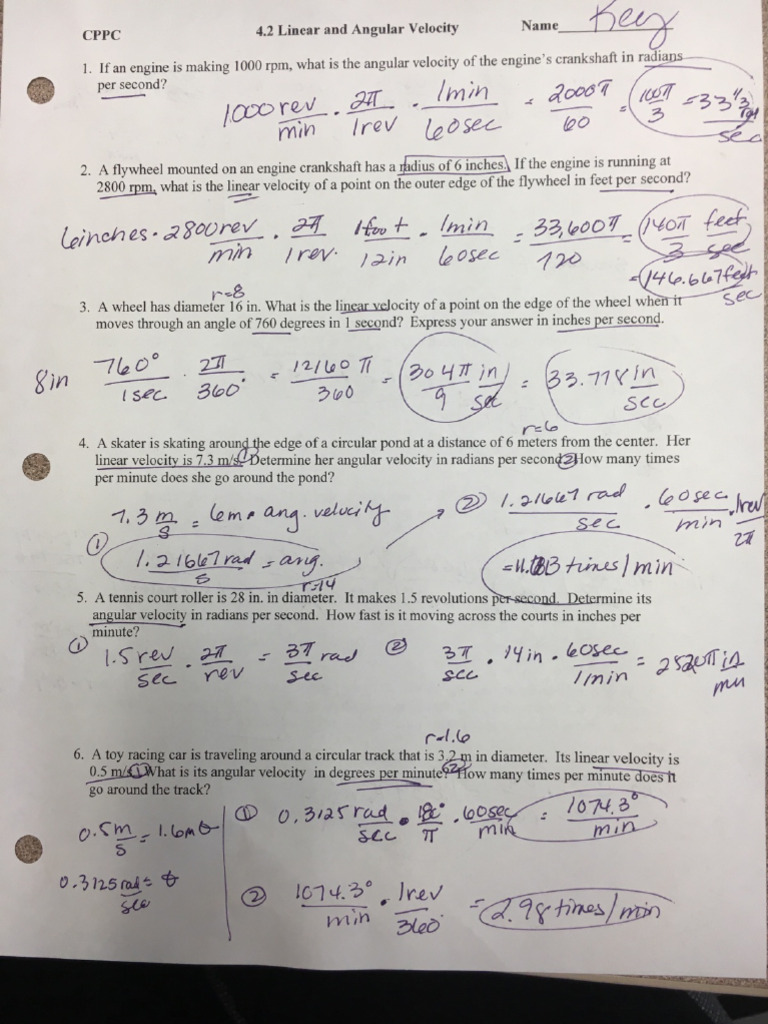 CPPC 4.2 Linear and Angular Velocity Name Key
1. If an engine is making 1000 rpm, what is the angular velocity of the engine's crankshaft in radians
per second?
1000 rev/min · 2π/1rev · 1min/60sec = 2000π/60 = 100π/3 = 33 1/3 rad/sec
2. A flywheel mounted on an engine crankshaft has a radius of 6 inches. If the engine is running at
2800 rpm, what is the linear velocity of a point on the outer edge of the flywheel in feet per second?
6inches · 2800rev/min · 2π/1rev · 1foot/12in · 1min/60sec = 33,600π/720 = 140π/3 feet/sec
= 146.667 feet/sec
r=8
3. A wheel has diameter 16 in. What is the linear velocity of a point on the edge of the wheel when it
moves through an angle of 760 degrees in 1 second? Express your answer in inches per second.
8in 760°/1sec. · 2π/360° = 12160π/360 = 304π/9 in/sec = 33.778 in/sec
r=6
4. A skater is skating around the edge of a circular pond at a distance of 6 meters from the center. Her
linear velocity is 7.3 m/s. ① Determine her angular velocity in radians per second ② How many times
per minute does she go around the pond?
7.3 m/s = 6m · ang. velocity
① 1.21667 rad/s = ang.
② 1.21667 rad/sec · 60sec/min · 1rev/2π
= 11.63 times/min
r=14
5. A tennis court roller is 28 in. in diameter. It makes 1.5 revolutions per second. Determine its
angular velocity in radians per second. How fast is it moving across the courts in inches per
minute?
① 1.5rev/sec · 2π/rev = 3π rad/sec ② 3π/sec · 14in · 60sec/1min = 2520π in/min
r=1.6
6. A toy racing car is traveling around a circular track that is 3.2 m in diameter. Its linear velocity is
0.5 m/s. ① What is its angular velocity in degrees per minute? ② How many times per minute does it
go around the track?
0.5m/s = 1.6m θ
0.3125 rad/sec = θ
① 0.3125 rad/sec · 180°/π · 60sec/min = 1074.3°/min
② 1074.3°/min · 1rev/360° = 2.98 times/min